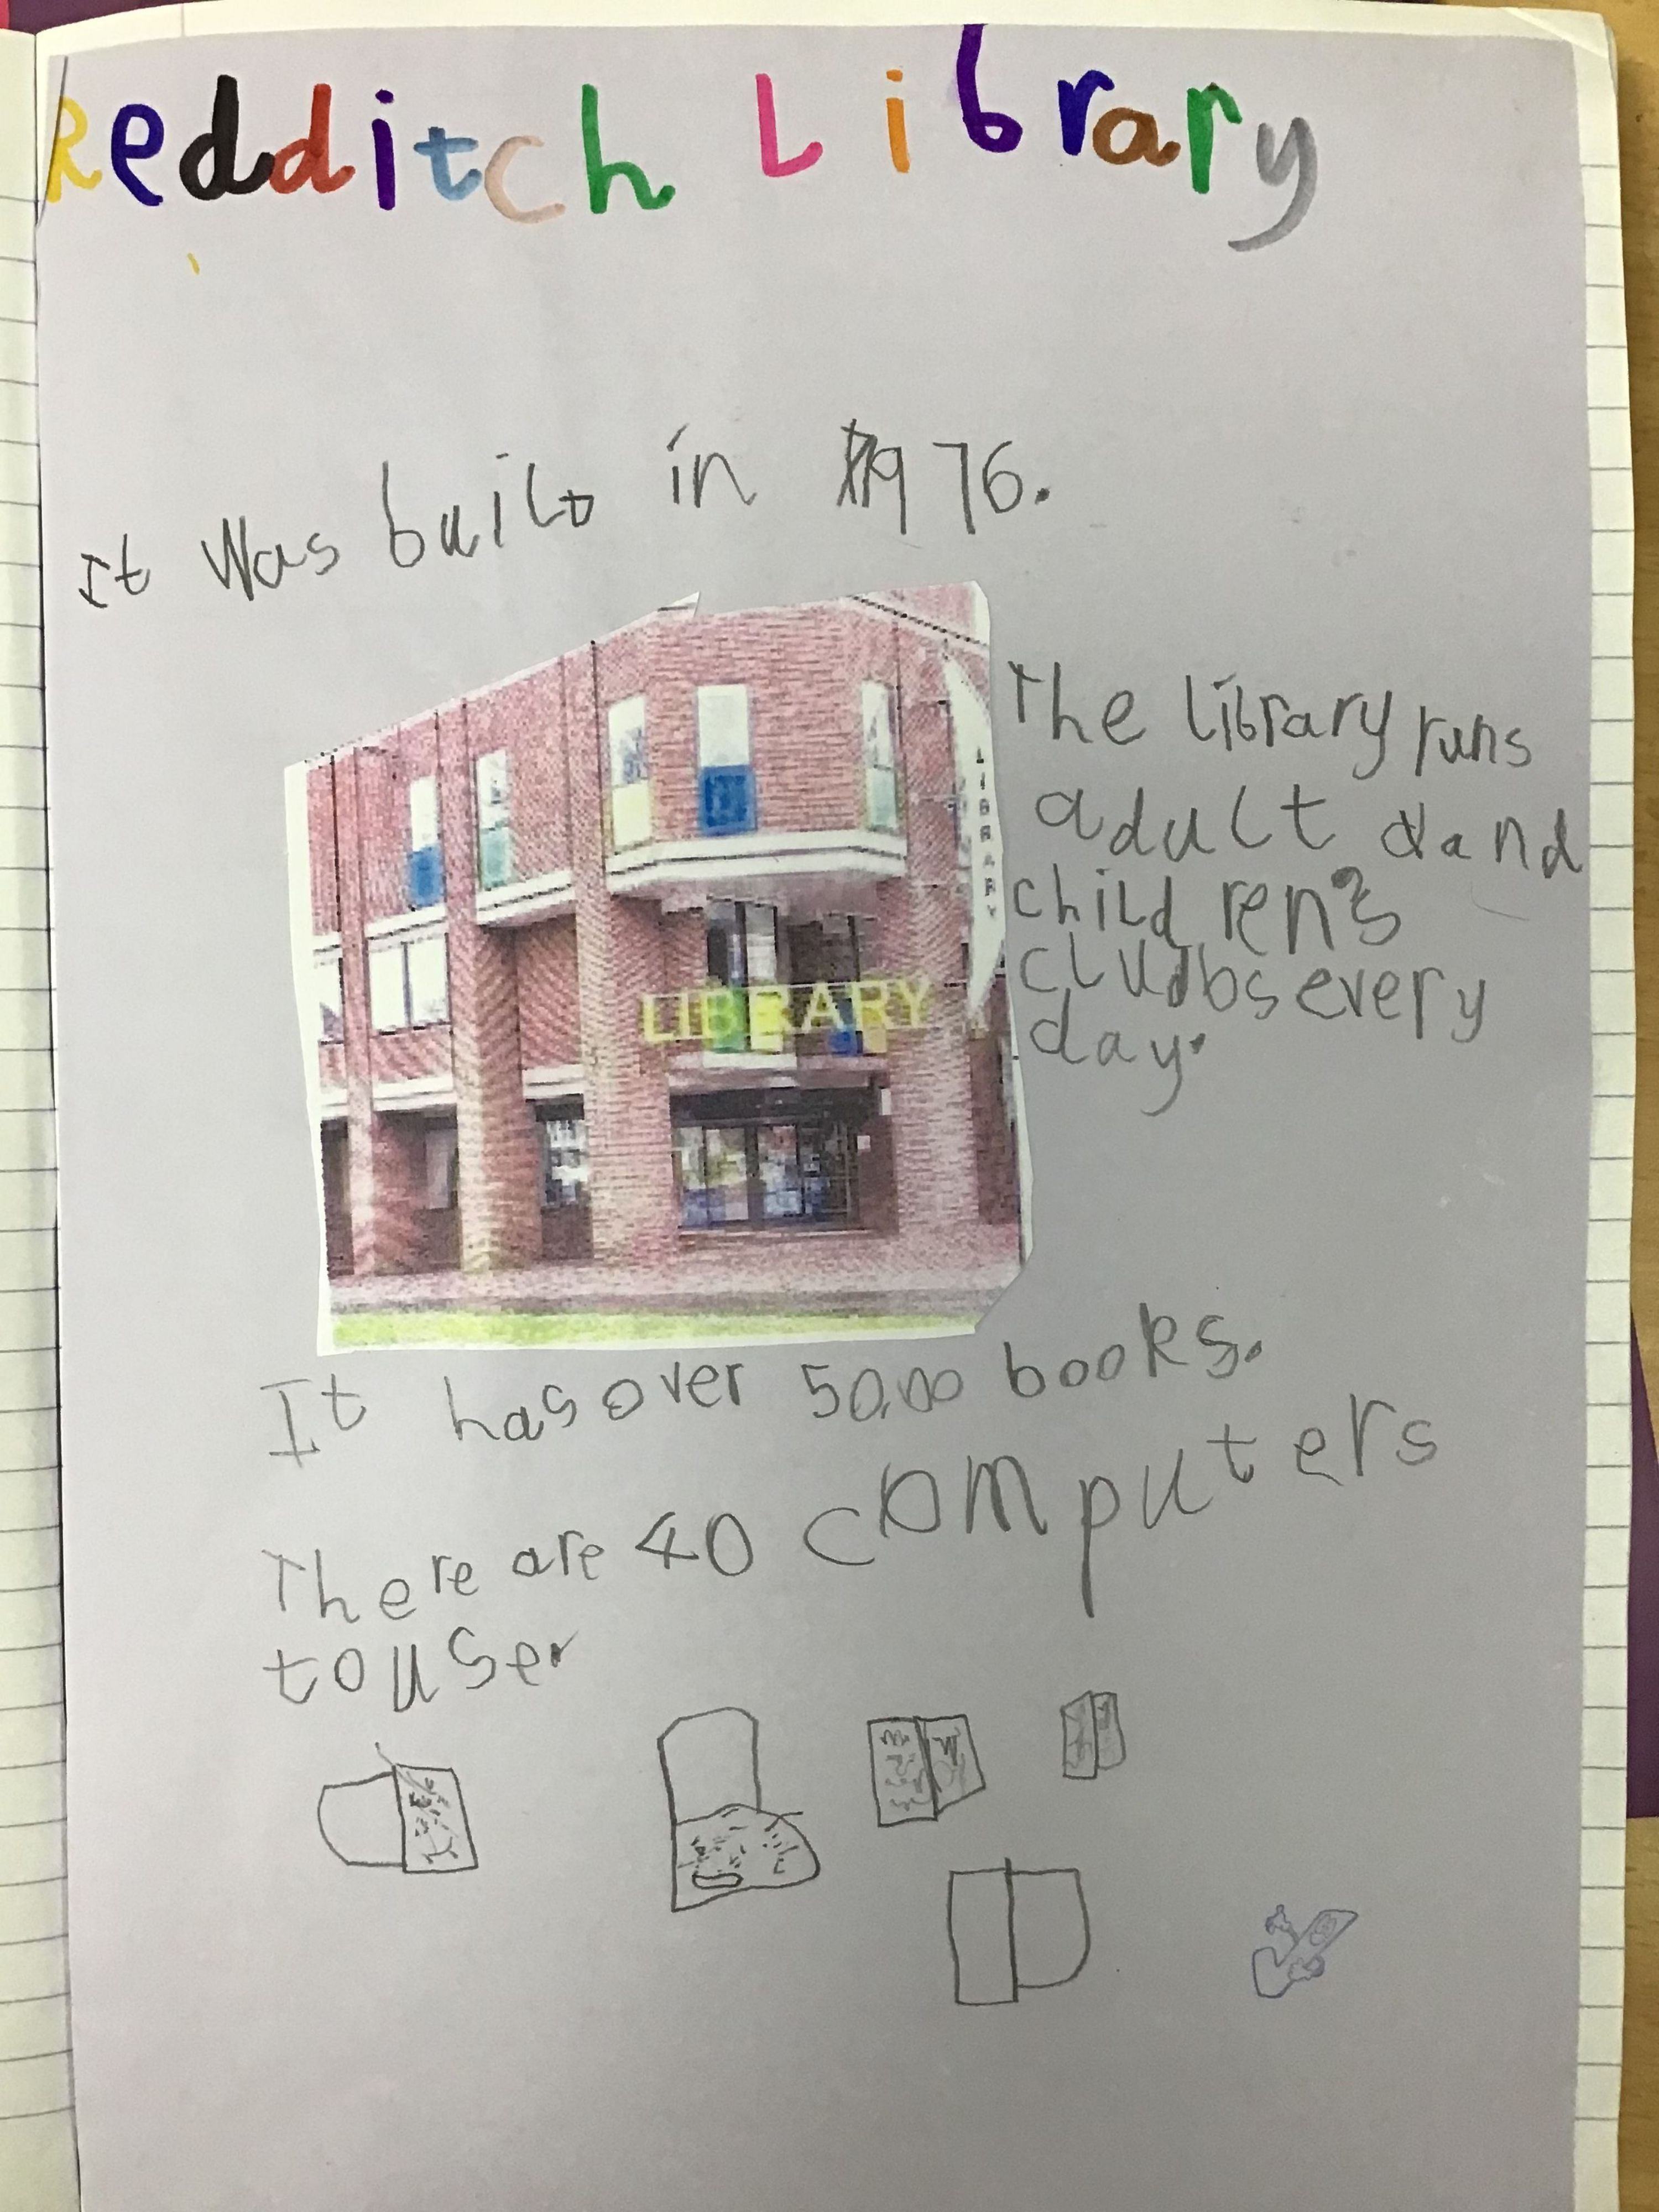 Redditch Library
It was built in 1976.
LIBRARY
LIBRARY
The library runs
adult and
children's
clubs every
day.
It has over 50,00 books.
There are 40 computers
to use.